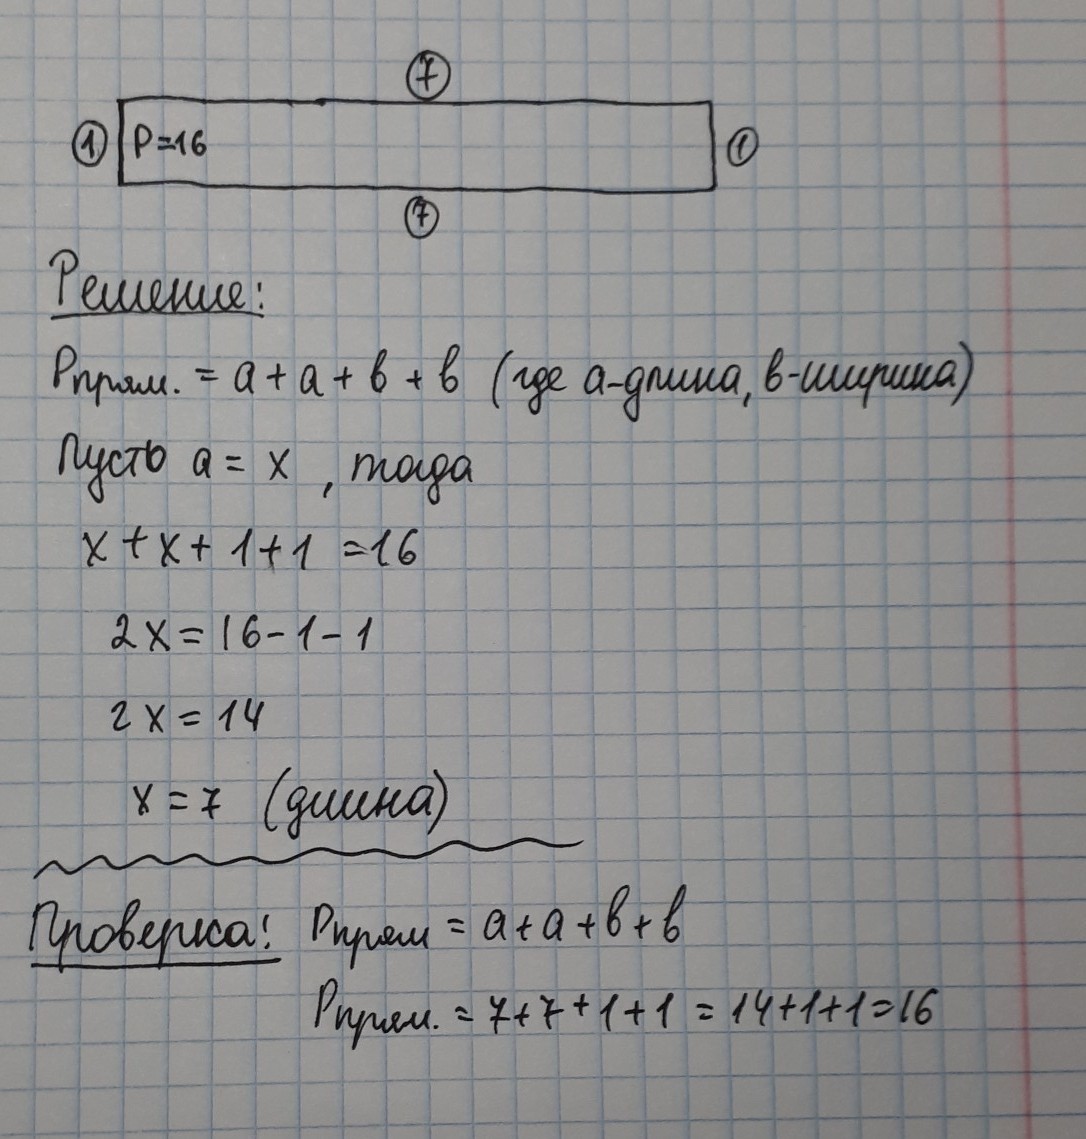 7
1 P=16 1
7
Решение:
Pпрям. = a + a + в + в (где a-длина, в-ширина)
Пусть a = x , тогда
x + x + 1 + 1 = 16
2x = 16 - 1 - 1
2x = 14
x = 7 (длина)
Проверка: Pпрям = a + a + в + в
Pпрям. = 7+7+1+1 = 14+1+1=16